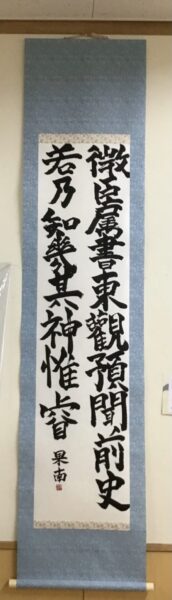 微臣属書東觀預聞前史
若乃知幾其神惟睿
果南